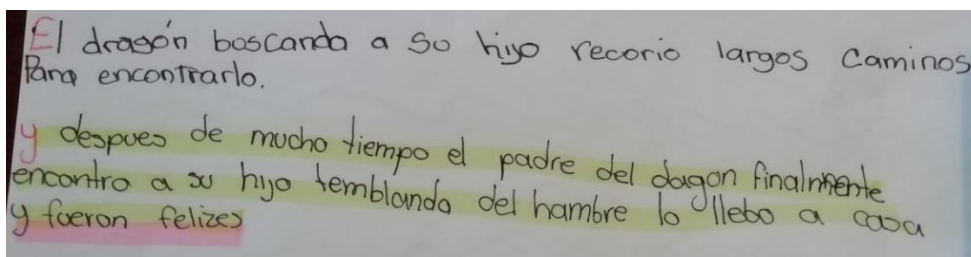 El dragón boscando a so hijo recorio largos caminos
Para encontrarlo.
y despues de mucho tiempo el padre del dagon finalmente
encontro a su hijo temblando del hambre lo llebo a casa
y fueron felizes